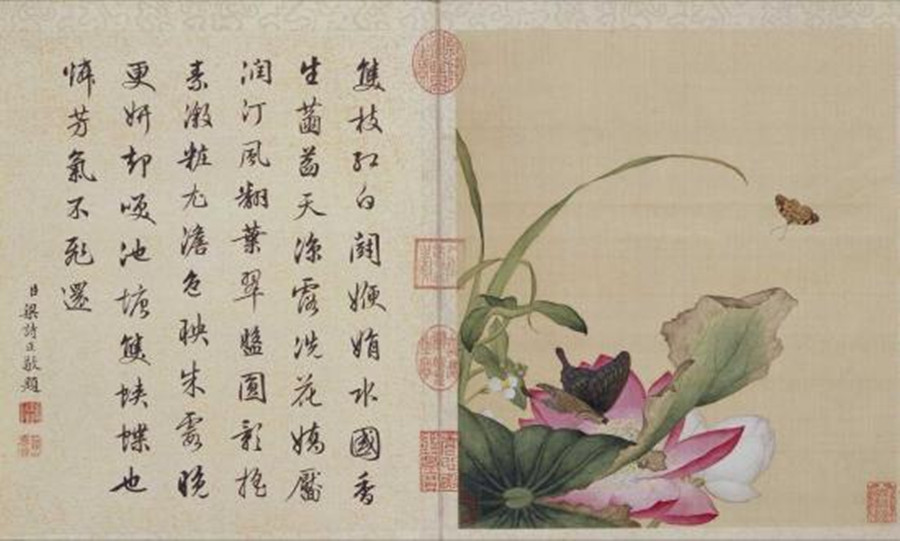 雙枝紅白鬪㛹娟水國香
生菡萏天涼露洗花嬌靨
潤汀風翻葉翠盤圓影搖
素漵粧尤澹色映朱霞晚
更妍却喚池塘雙蛺蝶也
憐芳氣不飛還
臣梁詩正敬題